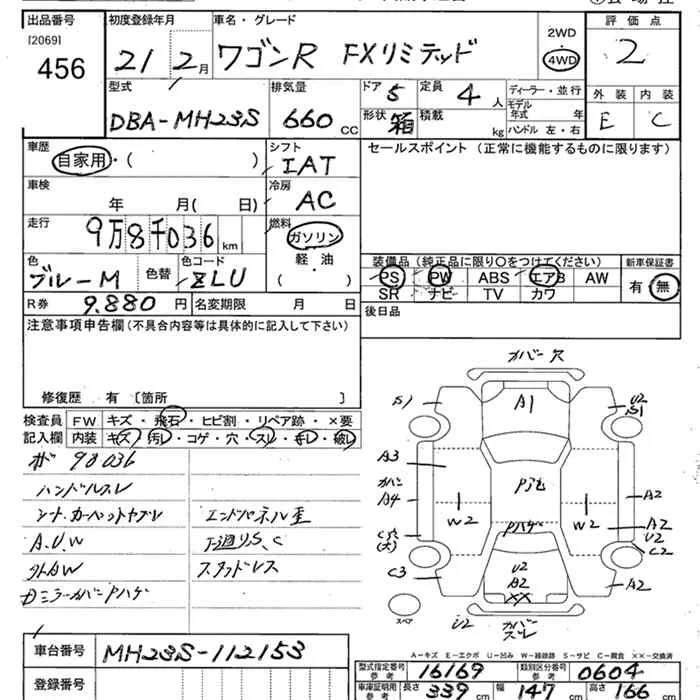 出品番号 初度登録年月 車名・グレード 2WD 評価点
[2069]
456 21 2月 ワゴンR FXリミテッド 4WD 2
型式 排気量 ドア 5 定員 4人 ディーラー・並行 外装 内装
DBA-MH23S 660cc 形状 箱 積載 kg モデル年式 年 E C
ハンドル 左・右
車歴 シフト セールスポイント (正常に機能するものに限ります)
自家用・( ) IAT
車検 冷房
年 月( 日) AC
走行 燃料
9万8千036km ガソリン
色 色替 色コード 軽・油 装備品(純正品に限り○をつけてください) 新車保証書
ブルーM ZLU ( ) PS PW ABS エアB AW 有 無
R券 9.880円 名変期限 月 日 SR ナビ TV カワ
注意事項申告欄(不具合内容等は具体的に記入して下さい) 後日品
修復歴 有〔箇所 〕
検査員 FW キズ・飛石・ヒビ割・リペア跡・×要
記入欄 内装 キズ・汚レ・コゲ・穴・スレ・キレ・破レ
98036
ハンドルスレ
シート.カーペットヤブレ エンドパネル歪
A.U.W 下廻りS.C
外山W スタッドレス
Dミラーカバーpハゲ
カバー穴
S1 A1 U2
S1
A3
カバー
A4 A2
W2 W2 A2
U2
C2
C穴
(大)
pハゲ
C3 U2
B2
XX A2
スペア U2 カバー
ズレ
A-キズ E-エクボ U-凹み W-補修跡 S-サビ C-腐食 ××-交換済
車台番号 MH23S-112153
型式指定番号 参考 16169 類別区分番号 参考 0604
登録番号 車庫証明用 参考 長さ 339cm 幅 147cm 高さ 166cm